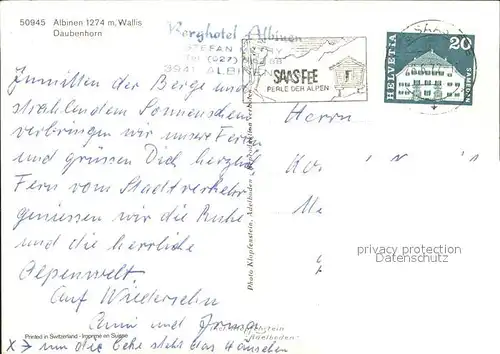 50945 Albinen 1274 m, Wallis
Daubenhorn
Berghotel Albinen
STEFAN
Tel (027)
3941 ALBINEN
SAAS-FEE
PERLE DER ALPEN
HELVETIA
20
SAMEDAN
Inmitten der Berge und
strahlendem Sonnenschein
verbringen wir unsere Ferien
und grüssen Dich herzlich
Fern vom Stadtverkehr
geniessen wir die Ruhe
und die herrliche
Alpenwelt
Auf Wiedersehn
und
X → um die Ecke steht das Häuschen
Herrn
Photo Klopfenstein, Adelboden
Printed in Switzerland - Imprimé en Suisse
Adelboden
copyright protection
DELCAMPE.NET